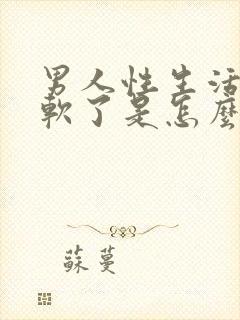 男人性生活
軟了是怎麼
蘇蔓